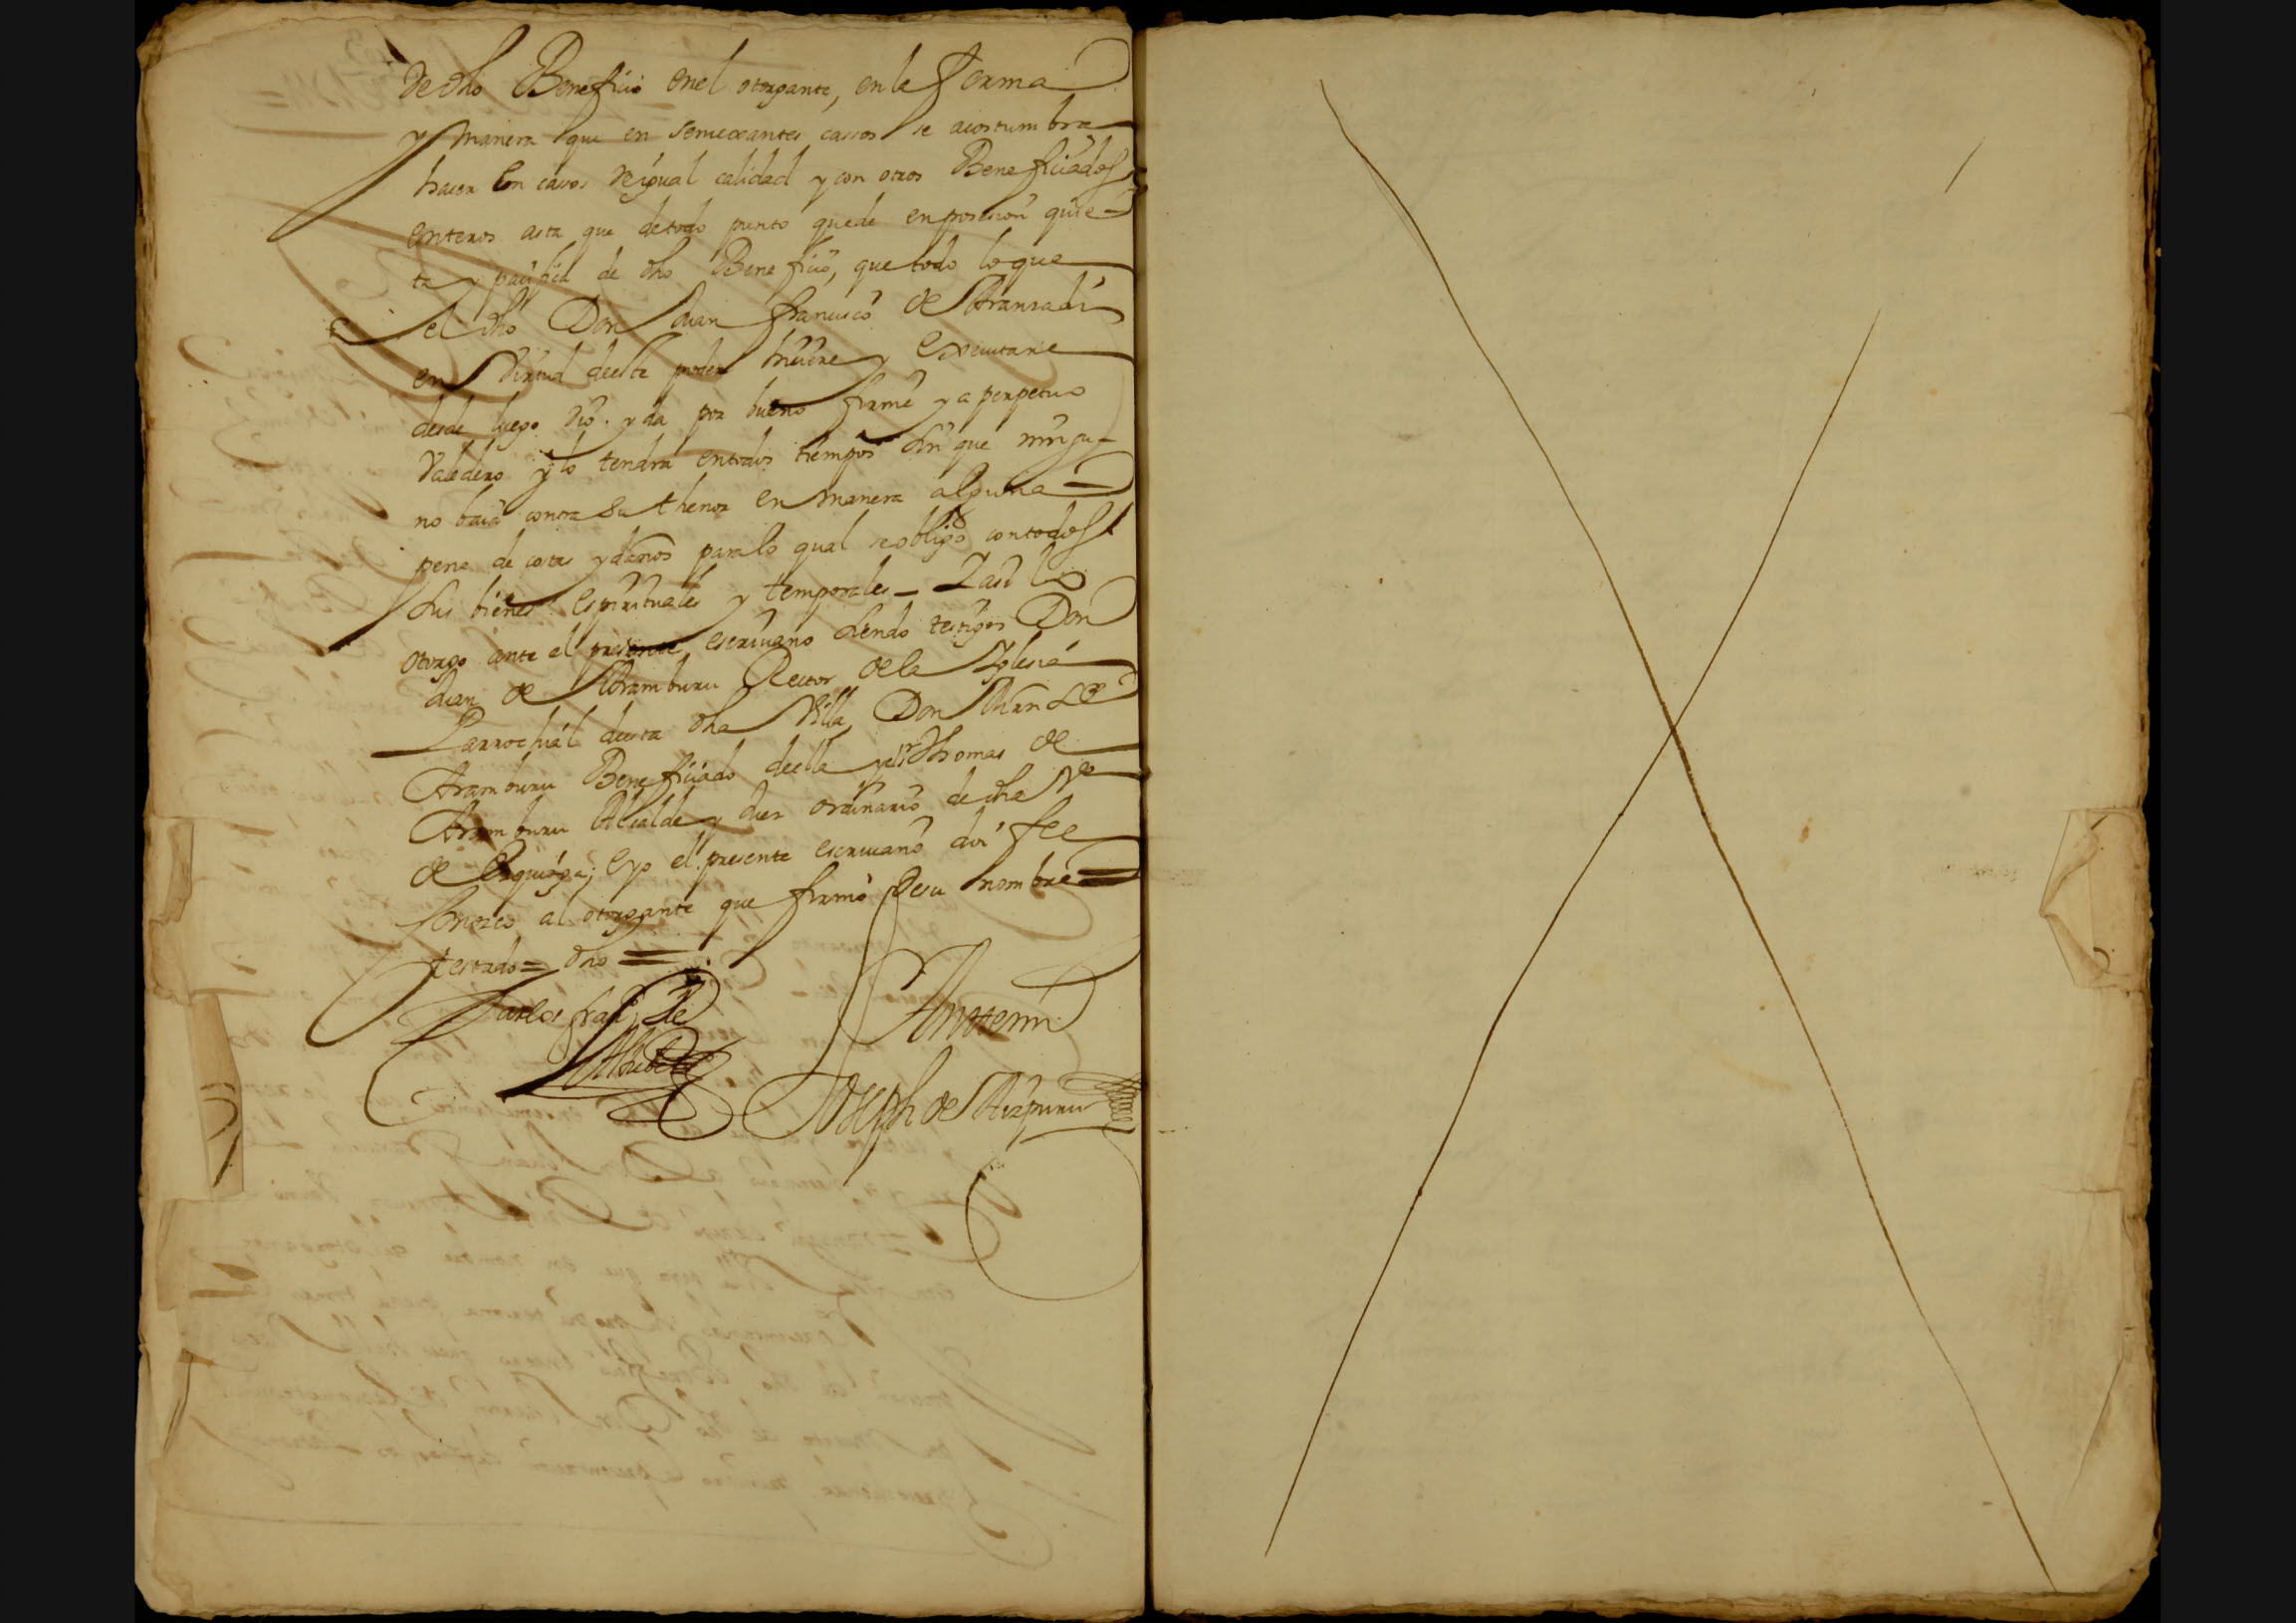 de dho Beneficio en el otorgante, en la forma
y manera que en semexantes cassos se acostumbra
hacer en casos de igual calidad y con otros Beneficiados
enteros asta que de todo punto quede en posesion quie-
ta y pacifica de dho Beneficio, que todo lo que
el dho Don Juan francisco de Aranzadi
en Virtud deeste poder hiciere y executare
desde luego dio. y da por bueno firme y a perpetuo
Valedero y lo tendra en todos tiempos sin que ningu-
no baia contra su thenor en manera alguna
pena de costas y daños para lo qual se obligo con todos
sus bienes espirituales y temporales – Y assi lo
otorgo ante el presente escriuano siendo testigos Don
Juan de Aramburu Rector de la Yglesia
Parrochial deesta dha Villa, Don
Aramburu Beneficiado deella y el Sr Thomas de
Aramburu Alcalde y Juez ordinario de dha Va
de Ezquioga; e yo el presente escriuano doi fee
conozco al otorgante que firmo de su nombre =
testado = dho =
Carlos franco de
Anttemi
Joseph de Aizpuru